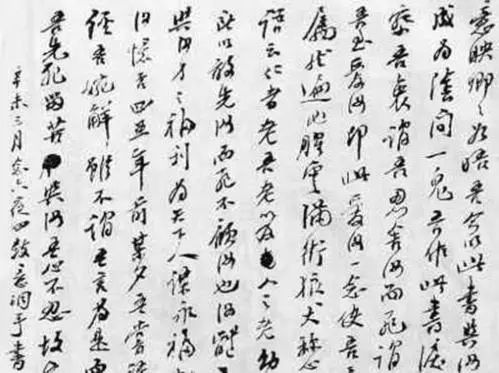 意映卿卿如晤吾今以此書與汝
成為陰間一鬼吾作此書淚
察吾衷謂吾忍舍汝而死謂
吾至愛汝即此愛汝一念使吾
屬然遍地腥雲滿街狼犬稱心
語云仁者老吾老以及人之老幼
此以敢先汝而死不顧汝也汝體
與汝身之福利為天下人謀永福
汝憶否四五年前某夕吾嘗語
經吾婉解雖不謂吾言為是而
吾先死留苦與汝吾心不忍故
辛未三月念六夜四鼓意洞手書